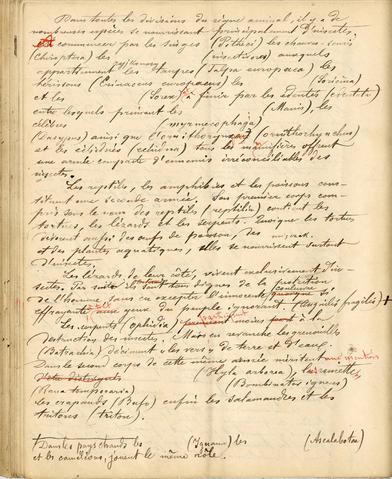 Dans toutes les divisions du règne animal, il y a de
nombreuses espèces se nourrissant principalement d'insectes.
commencer par les singes (Pitheci) les chauves-souris
(Chiroptera) les insectivores auxquels
appartiennent les taupes (Talpa europaea) les
hérissons (Erinaceus europaeus) les (Soricina)
et les (Sorex) à finir par les édentés (edentata)
entre lesquels priment les (Manis), les
célèbres (myrmecophaga)
(Dasypus) ainsi que l'ornithorynque (ornithorhynchus)
et les échidnés (echidna) tous les mammifères offrent
une armée compacte d'ennemis irréconciliables des
insectes.
Les reptils, les amphibies et les poissons cons-
tituent une seconde armée. Son premier corps com-
pris sous le nom des reptils (reptilia) contient les
tortues, les lézards et les serpents. Quoique les tortues
dissent œufs, des œufs de poisson, des
et des plantes aquatiques, elles se nourrissent surtout
d'insectes.
Les lézards de leur côté, vivent exclusivement d'in-
sectes. Par suite dignes de la protection
de l'homme sans en excepter l'innocente
effrayante aux yeux du peuple ignorant (Anguis fragilis) +
Les serpents (ophidia) moins à la
destruction des insectes. Mais en revanche les grenouilles
(Batrachia) déciment les vers de terre et d'eau.
Dans le second corps de cette même armée méritent une mention
(Hyla arborea), les rainettes
(Rana temporaria) (Bombinator igneus)
les crapauds (Bufo) enfin les salamandres et les
tritons (tritons).
+ Dans les pays chauds les (Iguana) les (Ascalabotae)
et les caméléons, jouent le même rôle.